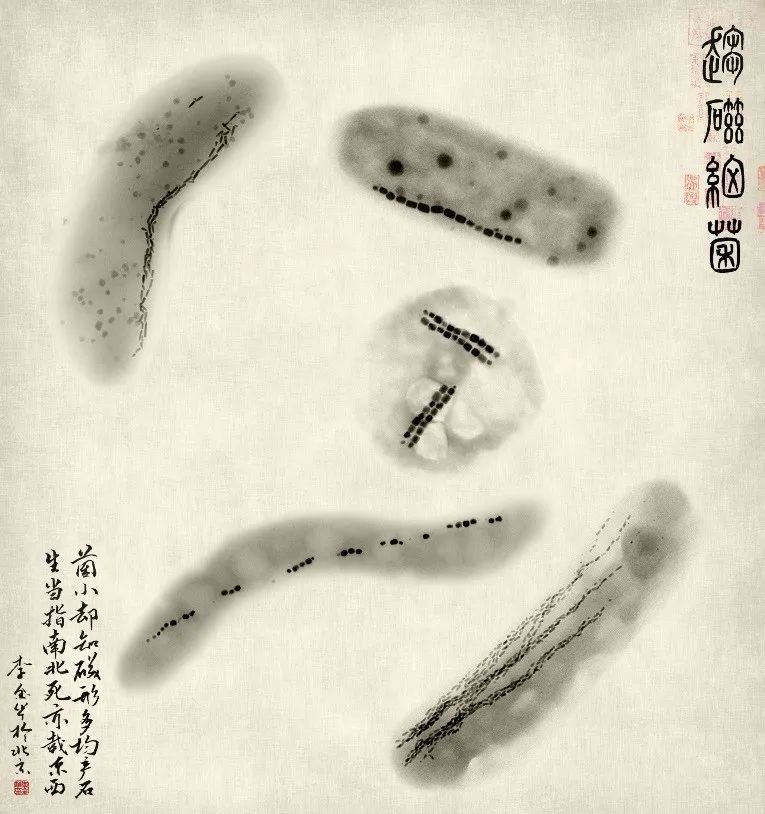 趨磁細菌
菌小却知磁形多均产石
生当指南北死亦哉东西
李金华於北京